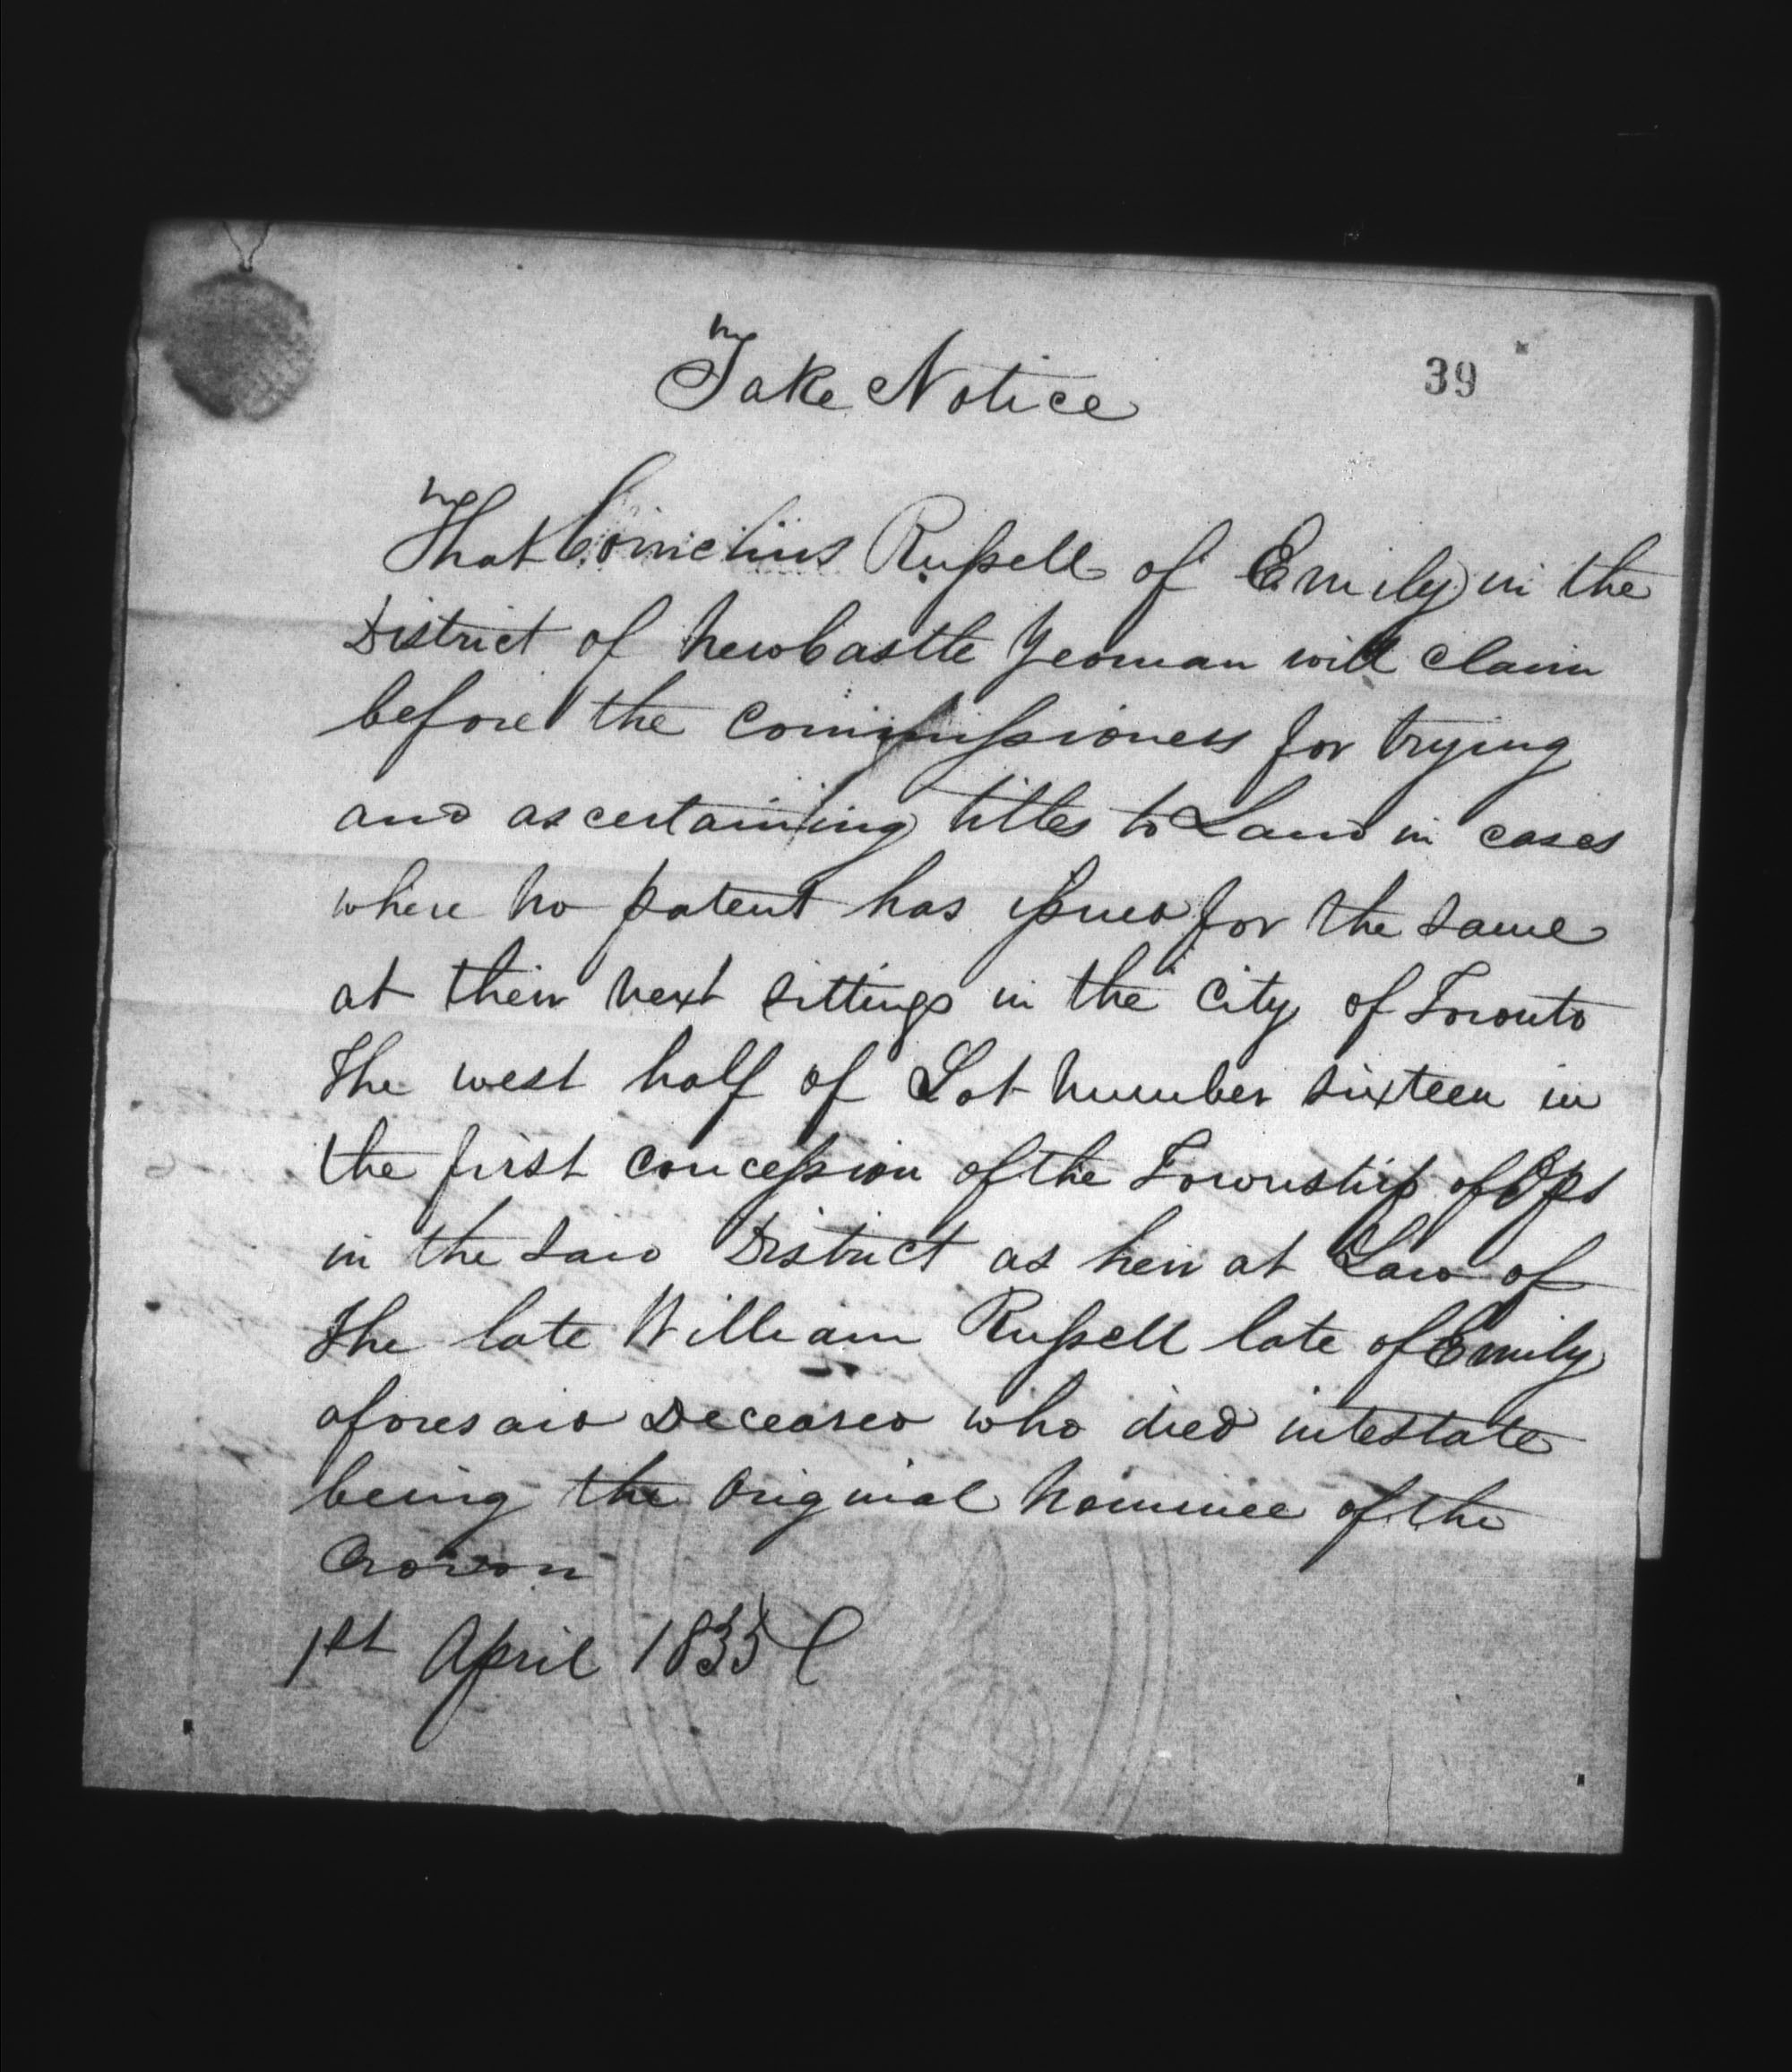 Take Notice
39
That Cornelius Russell of Emily in the
District of NewCastle Yeoman will claim
before the Commissioners for trying
and ascertaining titles to Land in cases
where no patent has issued for the same
at their next sittings in the City of Toronto
The west half of Lot number sixteen in
the first concession of the Township of Ops
in the said District as heir at Law of
the late William Russell late of Emily
aforesaid Deceased who died intestate
being the Original Nominee of the
Crown
1st April 1835